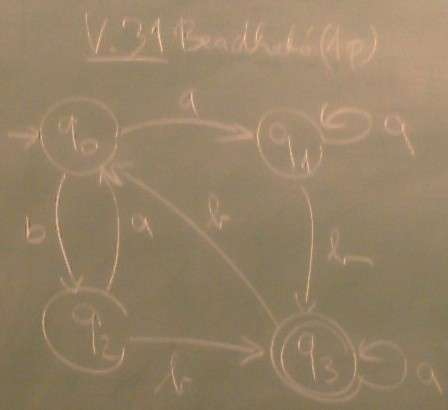 V.31 Beadható (1p)
a
q₀ q₁ a
b a b b
q₂ q₃ a
b